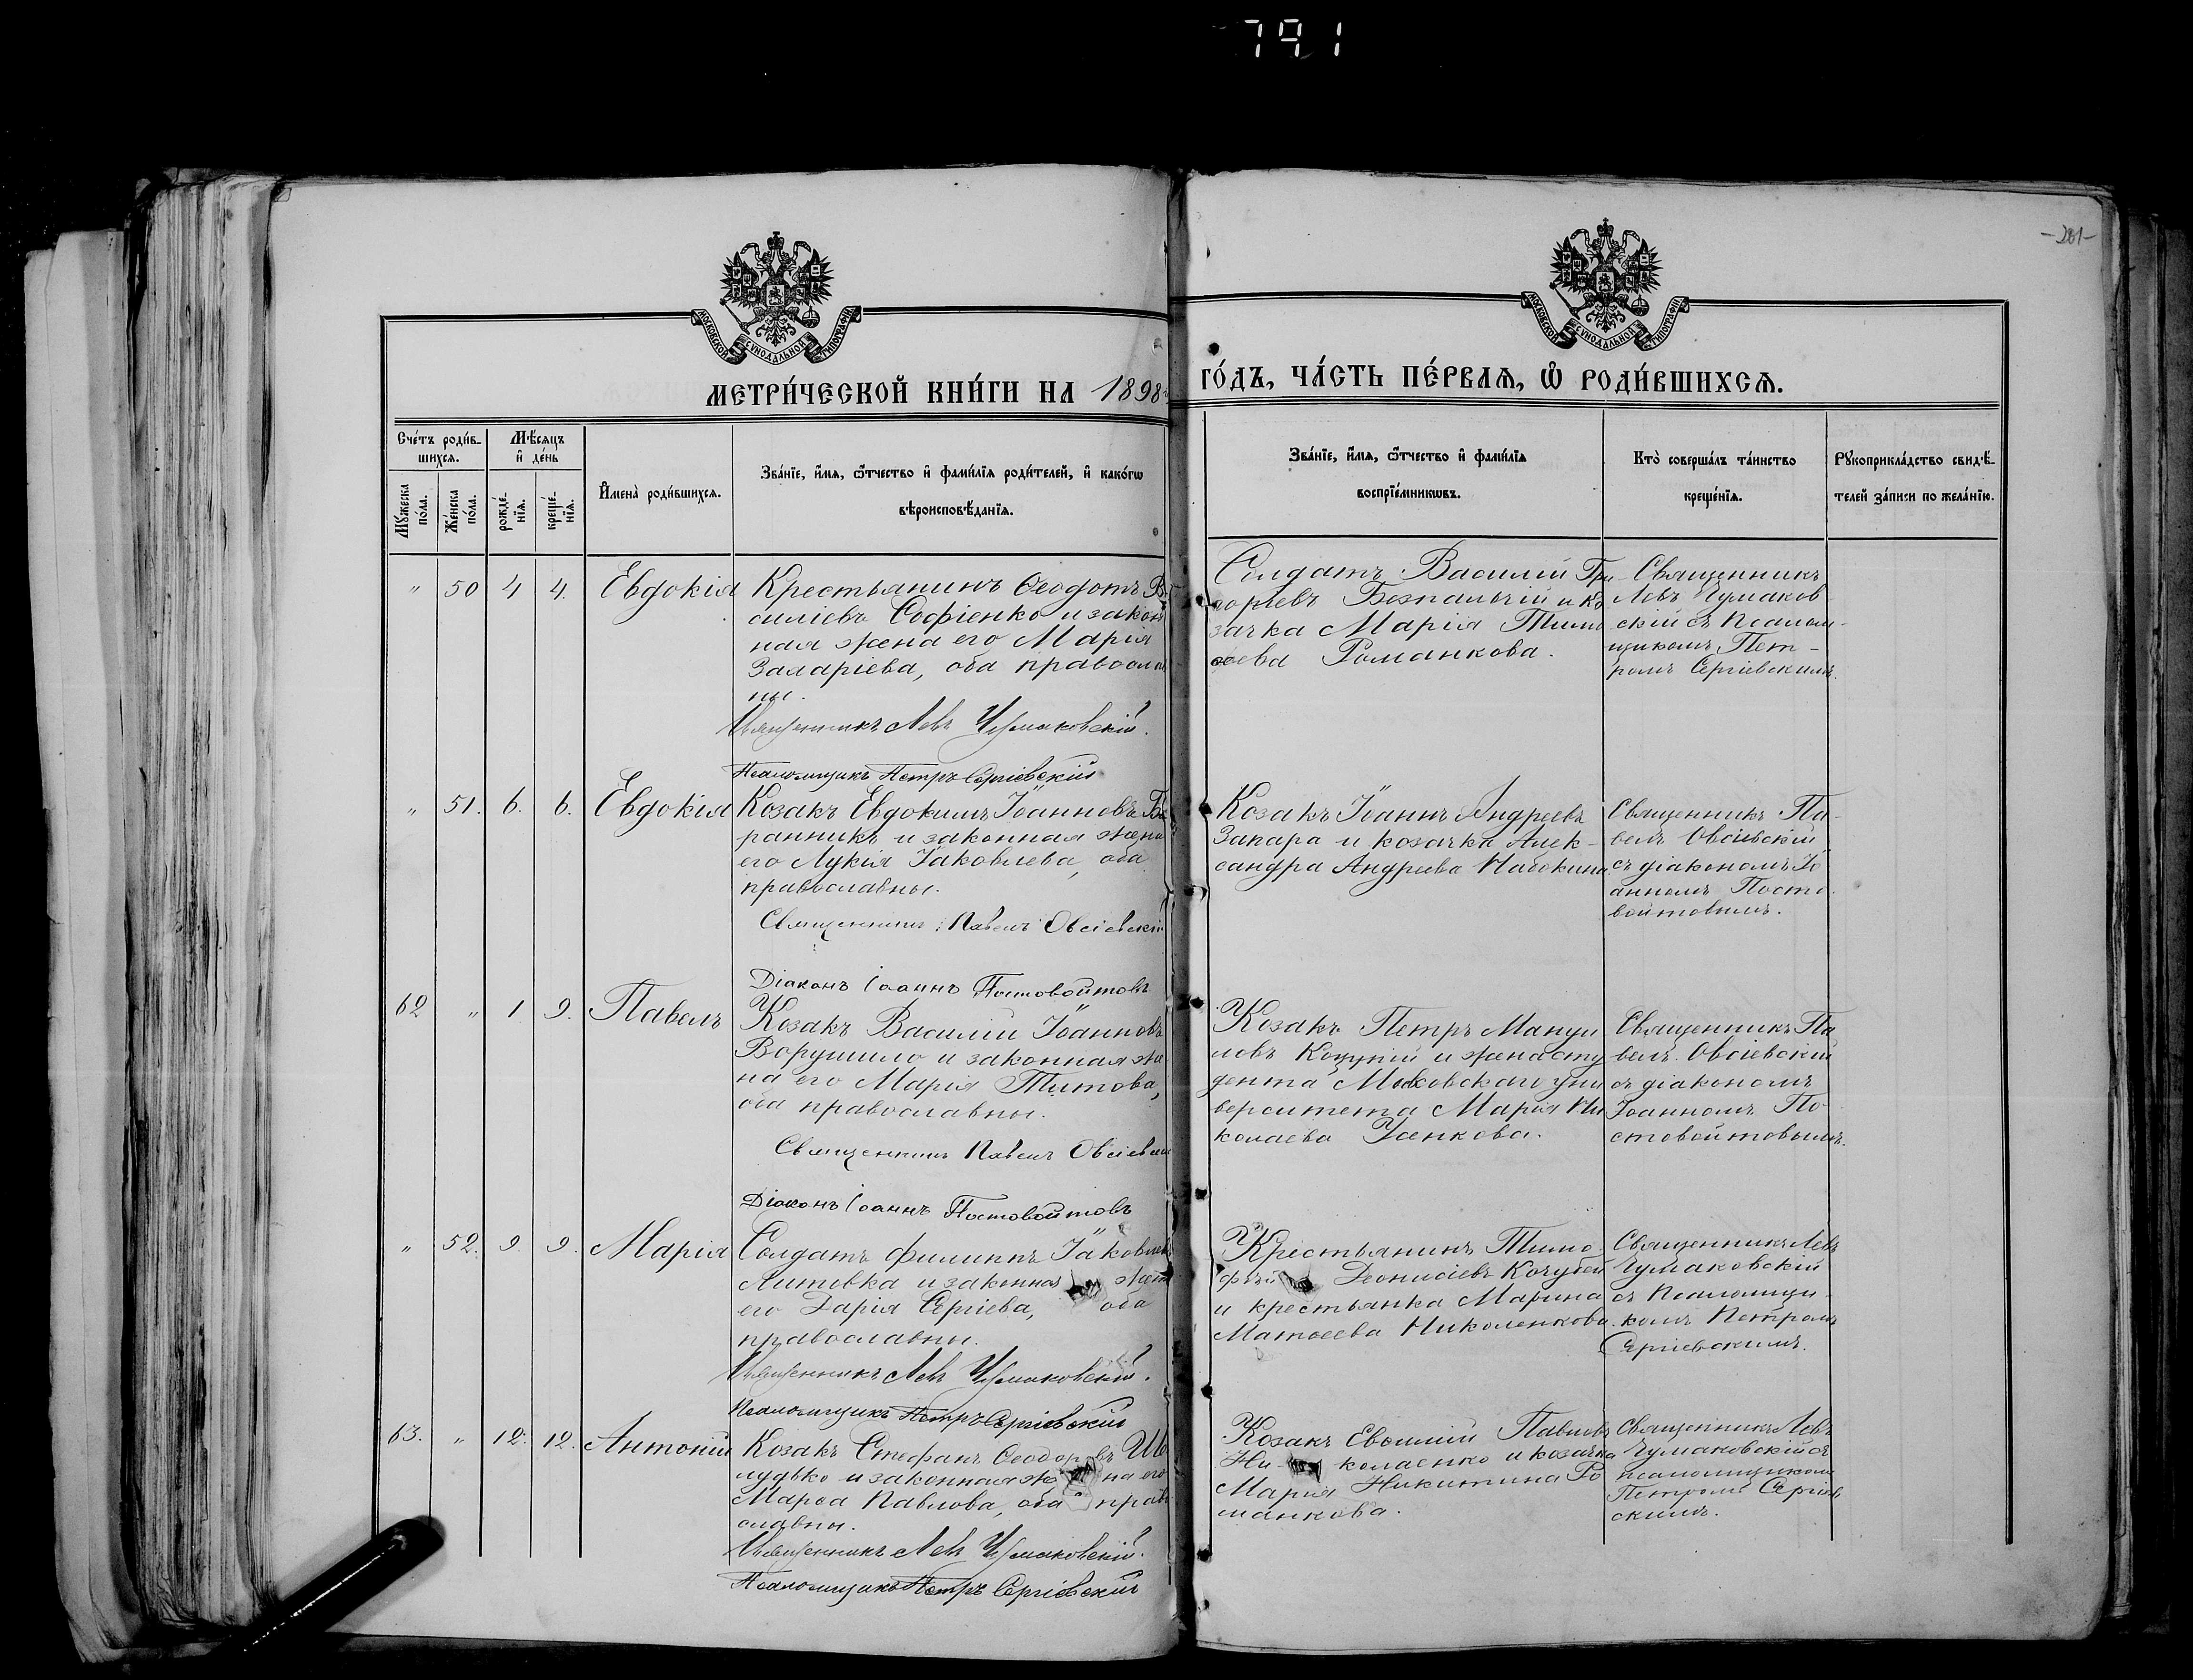 791
-201-
МОСКОВСКОЙ СѴНОДАЛЬНОЙ ТИПОГРАФІИ
МОСКОВСКОЙ СѴНОДАЛЬНОЙ ТИПОГРАФІИ
МЕТРИ́ЧЕСКОЙ КНИ́ГИ НА 1898
ГО́ДЪ, ЧА́СТЬ ПЕ́РВАѦ, Ѽ РОДИ́ВШИХСѦ.
Сче́тъ роди́в-
шихсѧ.
Мѣ́сѧцъ
и҆ де́нь
Мꙋ́жеска по́ла.
Же́нска по́ла.
рожде́-
нїѧ.
креще́-
нїѧ.
И҆мена̀ роди́вшихсѧ.
Зва́нїе, и҆́мѧ, ѻ҆́тчество и҆ фами́лїѧ роди́телей, и҆ како́гѡ
вѣроисповѣ́данїѧ.
Зва́нїе, и҆́мѧ, ѻ҆́тчество и҆ фами́лїѧ
воспрїе́мникѡвъ.
Кто̀ соверша́лъ та́инство
креще́нїѧ.
Рꙋкоприкла́дство свидѣ́-
телей за́писи по жела́нїю.
" 50 4 4. Евдокія
Крестьянинъ Ѳеодотъ Ва
силіевъ Софіенко и закон
ная жена его Марія
Захаріева, оба православ
ны.
Священникъ Левъ Чумаковскій.
Псаломщикъ Петръ Сергіевскій
Солдатъ Василій Гри
горіевъ Безпальчій и ко
зачка Марія Тимо
ѳеева Романкова.
Священникъ
Левъ Чумаков
скій съ псалом-
щикомъ Пет-
ромъ Сергіевскимъ.
" 51. 6. 6. Евдокія
Козакъ Евдокимъ Іоанновъ Ба
ранникъ и законная жена
его Лукія Іаковлева, оба
православны.
Священникъ Павелъ Овсіевскій
Діаконъ Іоаннъ Постовойтовъ
Козакъ Іоаннъ Андреевъ
Закара и козачка Алек-
сандра Андреева Набокина
Священникъ Па-
велъ Овсіевскій
съ діакономъ Іо
анномъ Посто
войтовымъ.
62 " 1 9. Павелъ
Козакъ Василій Іоанновъ
Ворушило и законная же
на его Марія Титова,
оба православны.
Священникъ Павелъ Овсіевскій
Діаконъ Іоаннъ Постовойтовъ
Козакъ Петръ Мануи
ловъ Коцупій и жена сту
дента Московскаго уни
верситета Марія Ни
колаева Ганкова.
Священникъ Па
велъ Овсіевскій
съ діакономъ
Іоанномъ По
стовойтовымъ.
" 52. 9. 9. Марія
Солдатъ Филиппъ Іаковлевъ
Литовка и законная жена
его Дарія Сергіева, оба
православны.
Священникъ Левъ Чумаковскій.
Псаломщикъ Петръ Сергіевскій
Крестьянинъ Тимо
фѣй Діонисіевъ Кочубей
и крестьянка Марина
Матѳеева Николенкова.
Священникъ Левъ
Чумаковскій
съ псаломщи-
комъ Петромъ
Сергіевскимъ.
63. " 12. 12. Антоній
Козакъ Стефанъ Ѳеодоровъ Ше
лудько и законная жена его
Марѳа Павлова, оба право
славны.
Священникъ Левъ Чумаковскій.
Псаломщикъ Петръ Сергіевскій
Козакъ Евѳимій Павловъ
Николаенко и козачка
Марія Никитина Ро
манкова.
Священникъ Левъ
Чумаковскій съ
псаломщикомъ
Петромъ Сергіев
скимъ.